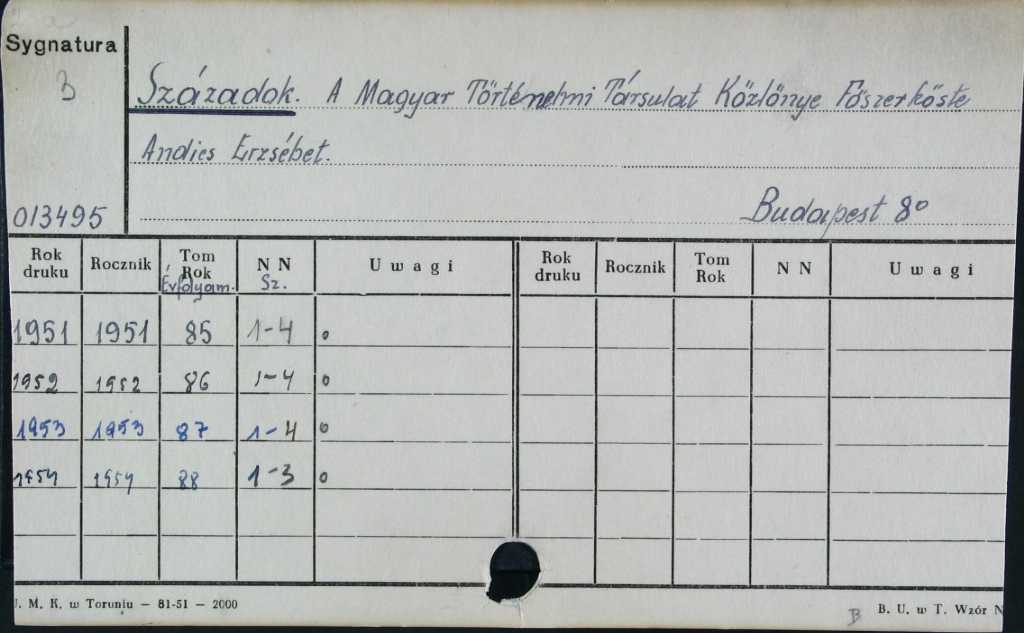 Sygnatura
B
Századok. A Magyar Történelmi Társulat Közlönye Főszerkőste
Andics Erzsébet.
013495
Budapest 8°
Rok druku Rocznik Tom Rok Évfolyam. NN Sz. Uwagi Rok druku Rocznik Tom Rok NN Uwagi
1951 1951 85 1-4 o
1952 1952 86 1-4 o
1953 1953 87 1-4 o
1954 1954 88 1-3 o
U. M. K. w Toruniu — 81-51 — 2000
B B. U. w T. Wzór N